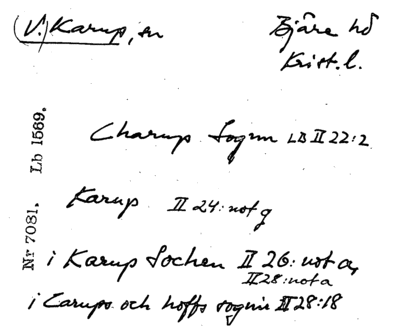 (V.) Karup, sn
Bjäre hd
Krist. l.
Lb 1569.
Nr 7081.
Charup Sognn LB II 22:2
Karup II 24: not g
i Karup Sochen II 26: not a,
II 28: not a
i Carups och hoffs sognir II 28:18